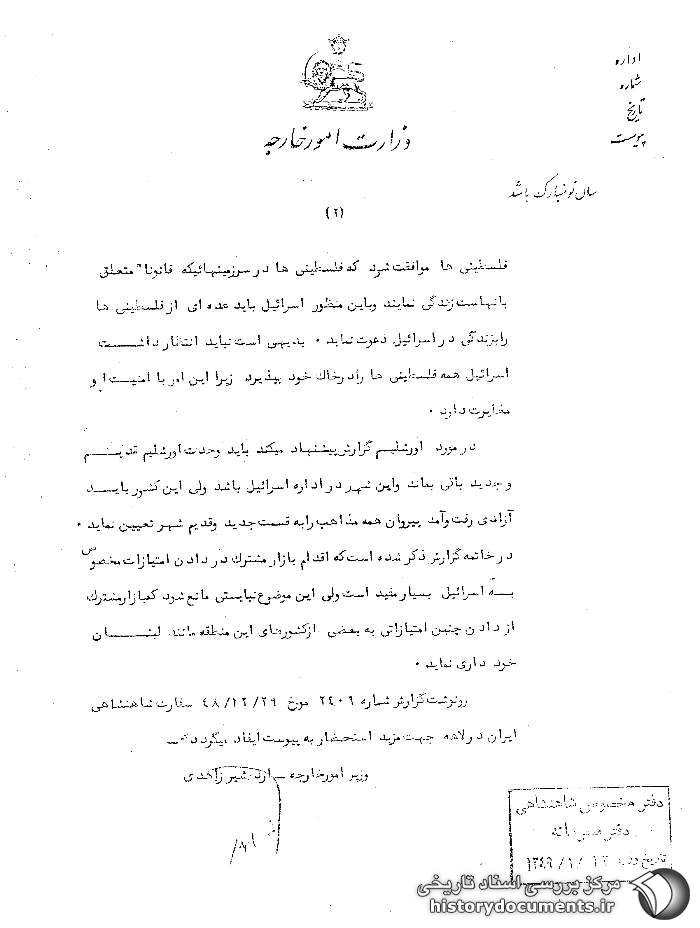 وزارت امور خارجه
اداره
شماره
تاریخ
پیوست
سال نو مبارک باشد
(۲)
فلسطینی ها موافقت شود که فلسطینی ها در سرزمینهائیکه قانونا" متعلق
بانهاست زندگی نمایند و باین منظور اسرائیل باید عده ای از فلسطینی ها
را بزندگی در اسرائیل دعوت نماید ۰ بدیهی است نباید انتظار داشت
اسرائیل همه فلسطینی ها را در خاک خود بپذیرد زیرا این امر با امنیت او
مغایرت دارد ۰
در مورد اورشلیم گزارش پیشنهاد میکند باید وحدت اورشلیم قدیم
و جدید باقی بماند و این شهر در اداره اسرائیل باشد ولی این کشور باید
آزادی رفت و آمد پیروان همه مذاهب را به قسمت جدید و قدیم شهر تعیین نماید ۰
در خاتمه گزارش ذکر شده است که اقدام بازار مشترک در دادن امتیازات مخصوص
به اسرائیل بسیار مفید است ولی این موضوع نبایستی مانع شود که بازار مشترک
از دادن چنین امتیازاتی به بعضی از کشورهای این منطقه مانند لبنان
خود داری نماید ۰
رونوشت گزارش شماره ۲۴۰۶ مورخ ۴۸/۱۲/۲۹ سفارت شاهنشاهی
ایران در لاهه جهت مزید استحضار به پیوست ایفاد میگردد
وزیر امور خارجه - اردشیر زاهدی
دفتر مخصوص شاهنشاهی
دفتر محرمانه
۱۳۴۹/۱/۱۲
مرکز بررسی اسناد تاریخی
historydocuments.ir